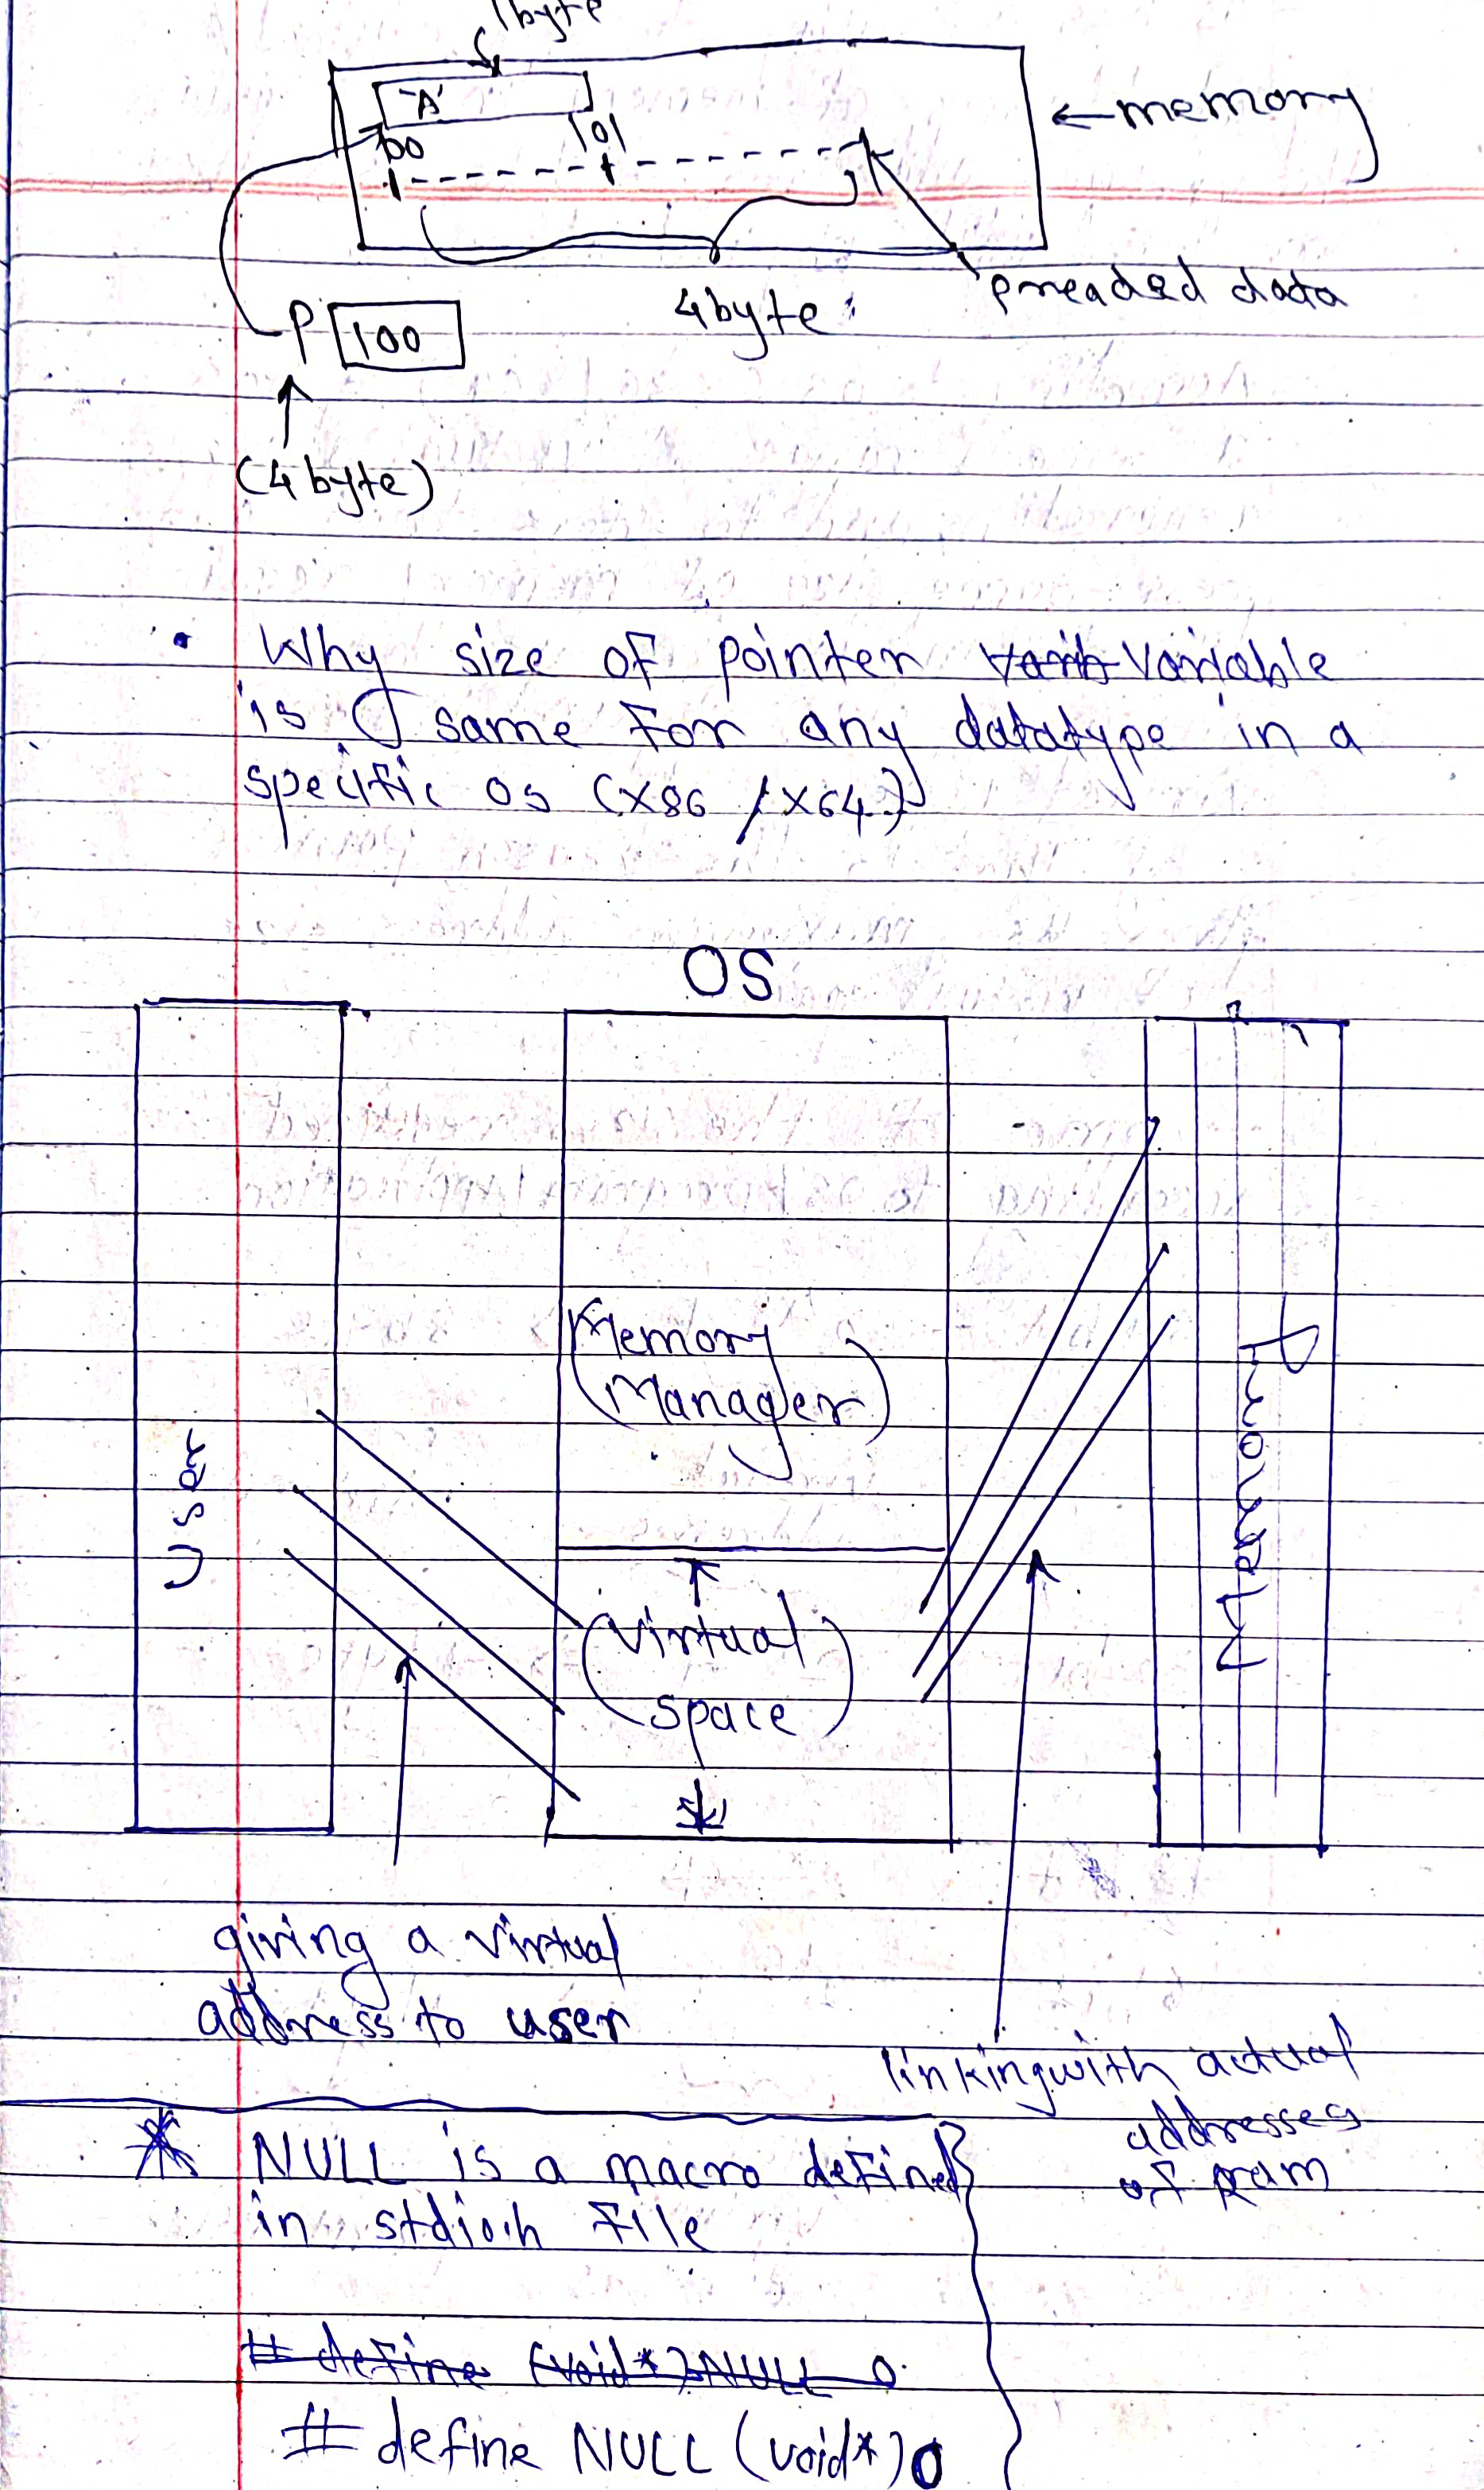 1byte
'A'
100
101
←memory
P 100
4byte
preaded data
(4 byte)
• Why size of pointer Varib Variable
is same for any datatype in a
specific os (x86 / x64)
OS
User
Memory
(Manager)
(Virtual
space)
Memory
giving a virtual
address to user
linking with actual
addresses
of ram
* NULL is a macro defined
in stdio.h file
# define (void*) NULL 0
# define NULL (void*)0